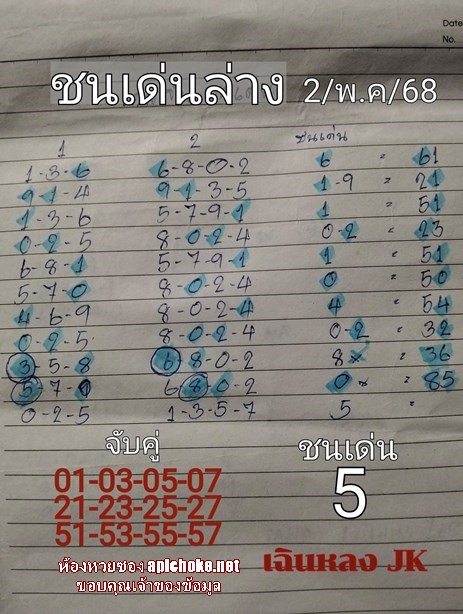 Date
No.
ชนเด่นล่าง 2/พ.ค/68
1 2 ชนเด่น
1-3-6 6-8-0-2 6 = 61
9-1-4 9-1-3-5 1-9 = 21
1-3-6 5-7-9-1 1 = 51
0-2-5 8-0-2-4 0-2 = 23
6-8-1 5-7-9-1 1 = 51
5-7-0 8-0-2-4 0 = 50
4-6-9 8-0-2-4 4 = 54
0-2-5 8-0-2-4 0-2 = 32
3-5-8 6-8-0-2 8x = 36
5-7-0 6-8-0-2 0x = 85
0-2-5 1-3-5-7 5 =
จับคู่ ชนเด่น
01-03-05-07
21-23-25-27
51-53-55-57
5
ห้องหวยซอง apichoke.net
ขอบคุณเจ้าของข้อมูล
เฉินหลง JK